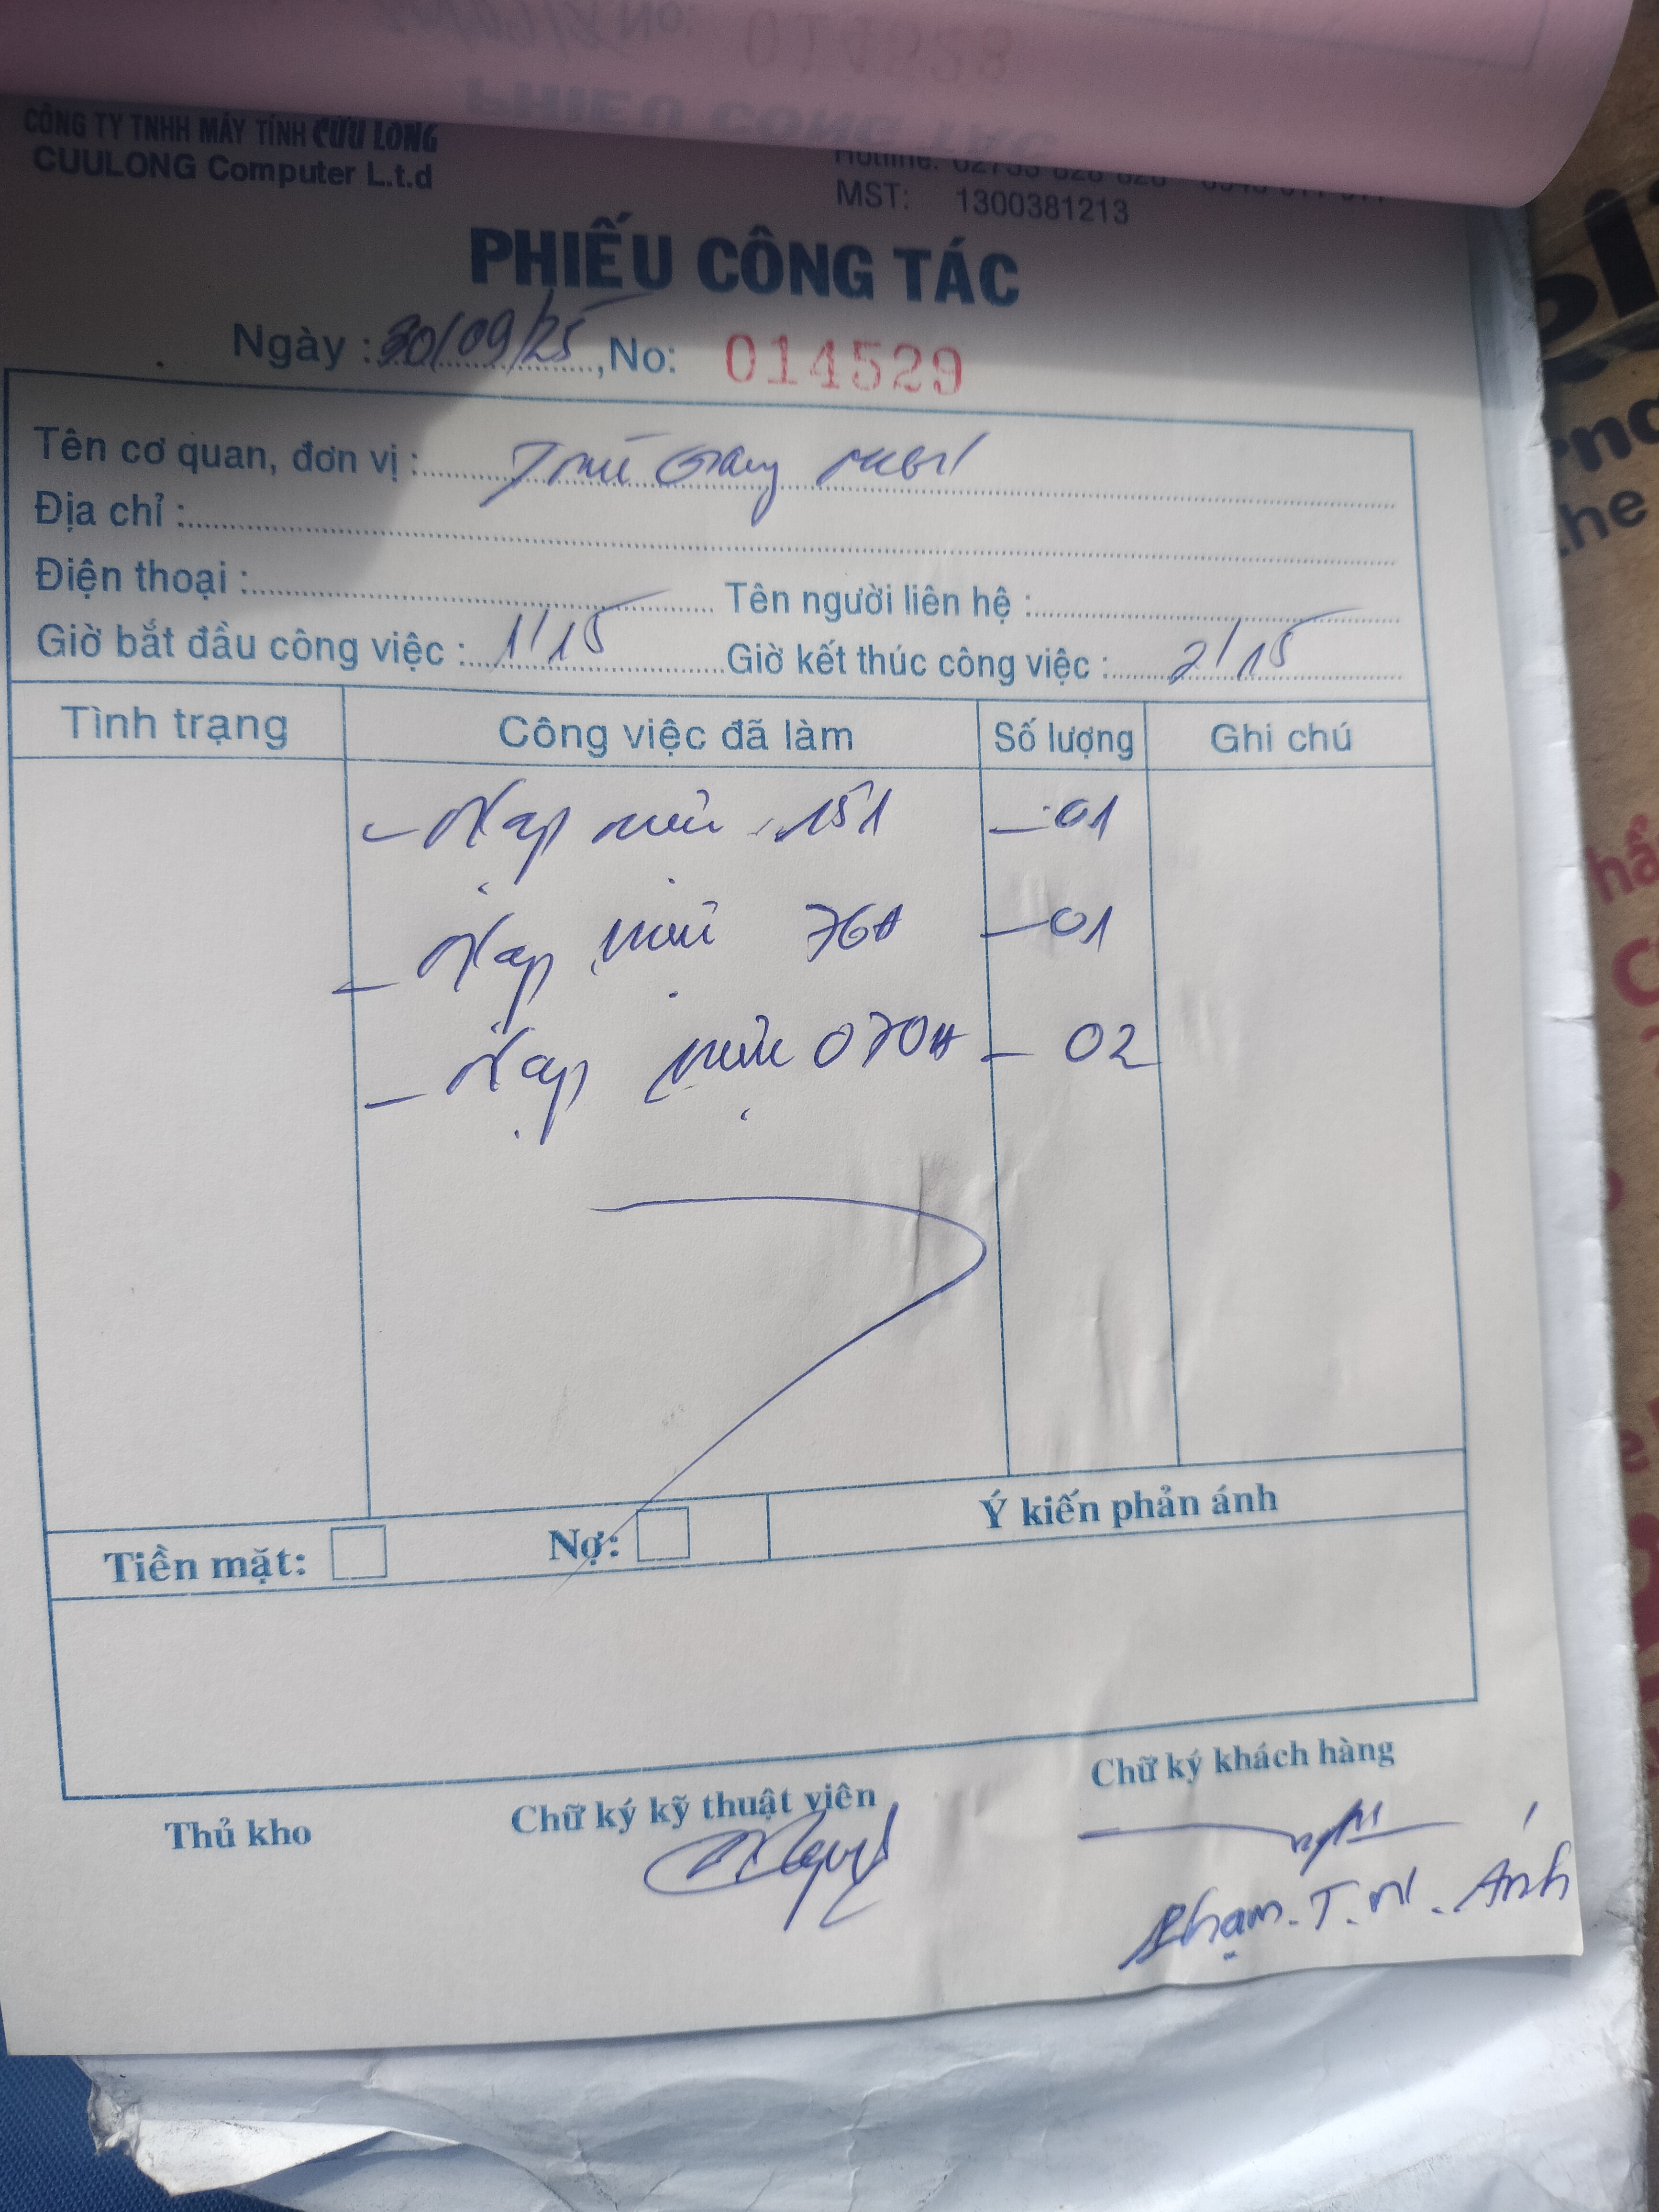 CÔNG TY TNHH MÁY TÍNH CỬU LONG
CUULONG Computer L.t.d
MST: 1300381213
PHIẾU CÔNG TÁC
Ngày : 30/09/25, No: 014529
Tên cơ quan, đơn vị :
Địa chỉ :
Điện thoại : Tên người liên hệ :
Giờ bắt đầu công việc : 1/15 Giờ kết thúc công việc : 2/15
Tình trạng Công việc đã làm Số lượng Ghi chú
- Nạp mực 151 - 01
- Nạp mực 76A - 01
- Nạp mực 070H - 02
Tiền mặt: Nợ: Ý kiến phản ánh
Thủ kho Chữ ký kỹ thuật viên Chữ ký khách hàng
Phạm. T. M. Ánh